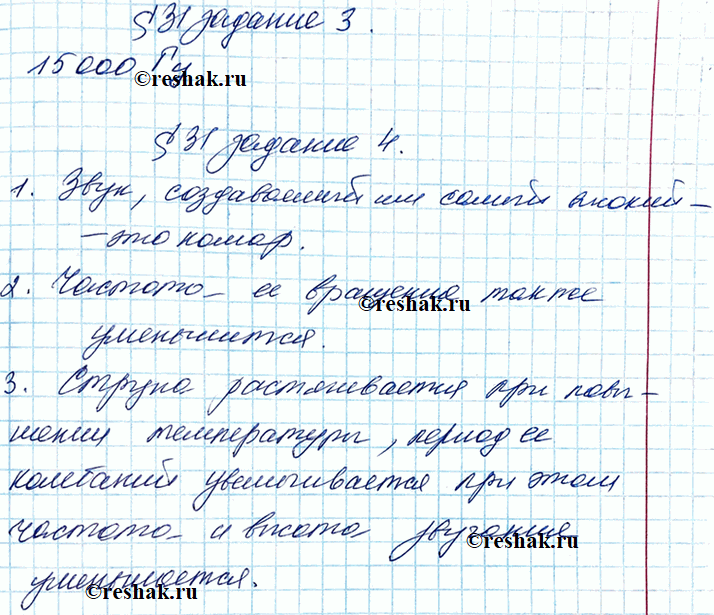 §31 задание 3.
15000 Гц
©reshak.ru
§31 задание 4.
1. Звук, создаваемый им самый низкий –
– это комар.
2. Частота ее вращения также
©reshak.ru
уменьшится.
3. Струна растягивается при повы-
шении температуры, период ее
колебаний увеличивается при этом
частота и высота звучания
©reshak.ru
уменьшается.
©reshak.ru